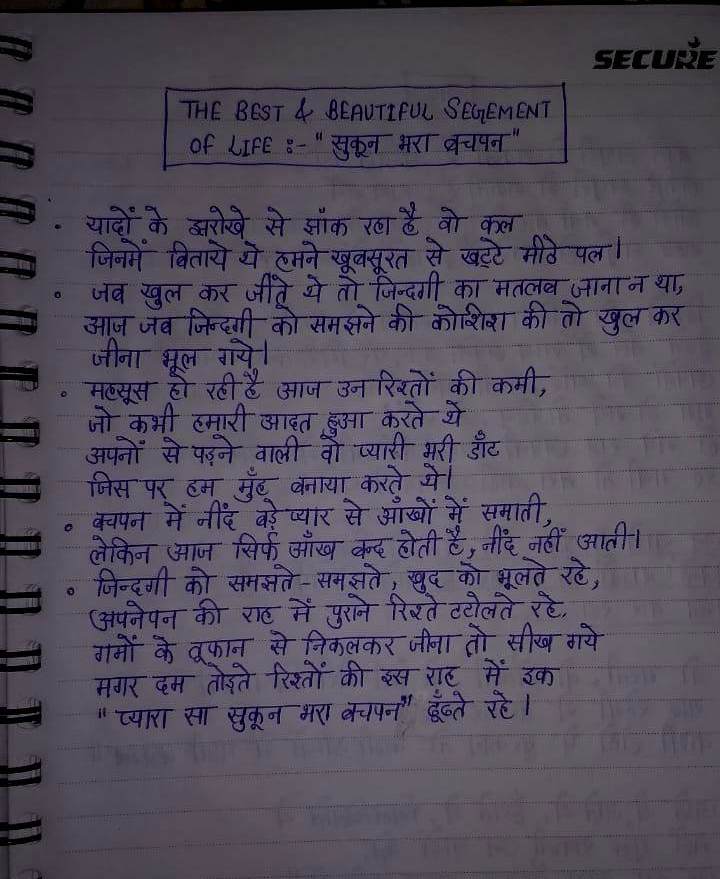 SECURE
THE BEST & BEAUTIFUL SEGEMENT
OF LIFE :- "सुकून भरा बचपन"
• यादों के झरोखे से झाँक रहा है वो कल
जिनमें बिताये थे हमने खूबसूरत से खट्टे मीठे पल।
• जब खुल कर जीते थे तो जिन्दगी का मतलब जाना न था,
आज जब जिन्दगी को समझने की कोशिश की तो खुल कर
जीना भूल गये।
• महसूस हो रही है आज उन रिश्तों की कमी,
जो कभी हमारी आदत हुआ करते थे
अपनों से पड़ने वाली वो प्यारी भरी डाँट
जिस पर हम मुँह बनाया करते थे।
• बचपन में नींद बड़े प्यार से आँखों में समाती,
लेकिन आज सिर्फ आँख बन्द होती है, नींद नहीं आती।
• जिन्दगी को समझते-समझते, खुद को भूलते रहे,
अपनेपन की राह में पुराने रिश्ते टटोलते रहे.
गमों के तूफान से निकलकर जीना तो सीख गये
मगर दम तोड़ते रिश्तों की इस राह में इक
"प्यारा सा सुकून भरा बचपन" ढूँढते रहे।